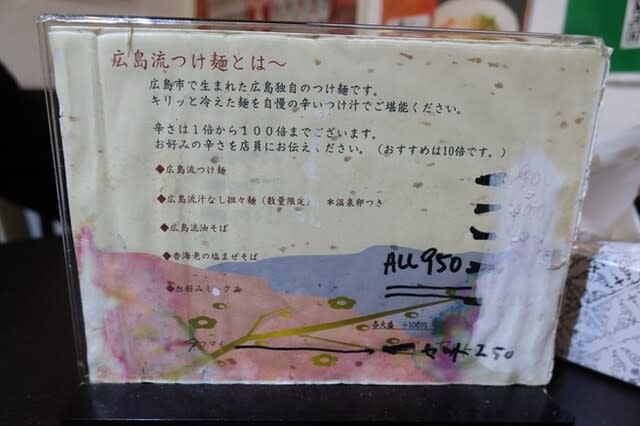 広島流つけ麺とは～
広島市で生まれた広島独自のつけ麺です。
キリッと冷えた麺を自慢の辛いつけ汁でご堪能ください。
辛さは1倍から100倍までございます。
お好みの辛さを店員にお伝えください。（おすすめは10倍です。）
◆広島流つけ麺
◆広島流汁なし担々麺（数量限定） ＊温泉卵つき
◆広島流油そば
◆香海老の塩まぜそば
ALL 950
◆お好みミックス
各大盛 +100円
250